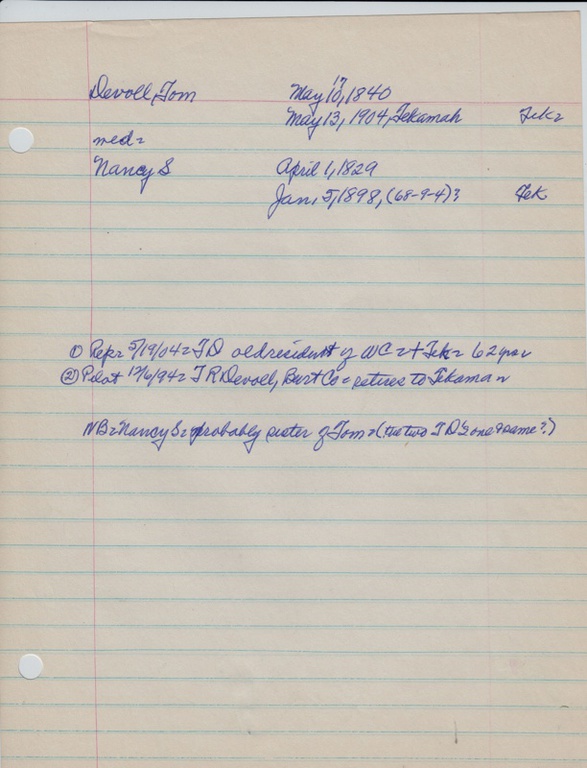 Devoll, Tom May 10, 1840 17
May 13, 1904, Tekamah Tek=
med=
Nancy S April 1, 1829
Jan, 5, 1898, (68-9-4)? Tek
① Rep= 5/19/04= TD old resident of WC=+Tek= 62 yrs=
② Pilot 12/6/94= T R Devoll, Burt Co= retires to Tekama=
NB= Nancy S= probably sister of Tom= (the two TD's one & same?)